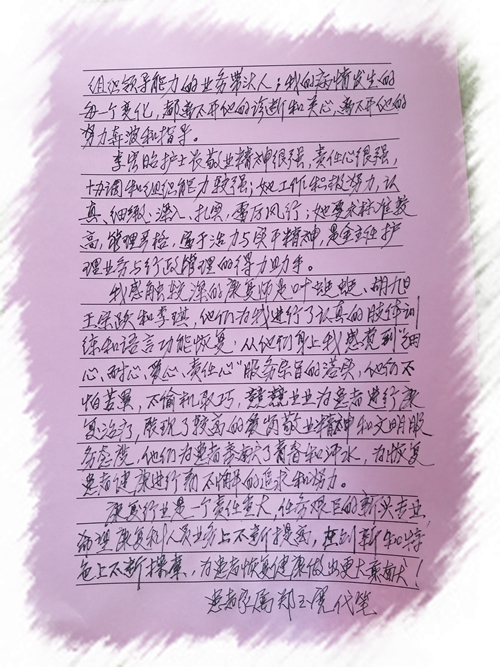 组织领导能力的业务带头人；我的病情发生的
每一个变化，都离不开他的诊断和关心，离不开他的
努力奔波和指导。
李 护士长敬业精神很强，责任心很强，
协调和组织能力较强；她工作积极努力，认
真、细微、深入、扎实，雷厉风行；她要求标准较
高，管理严格，富于活力与实干精神，是金主任护
理业务与行政管理的得力助手。
我感触较深的康复师是叶 、胡旭
王 和李琪，他们为我进行了认真的肢体训
练和语言功能恢复，从他们身上我感觉到“细
心、耐心、爱心、责任心”服务宗旨的落实，他们不
怕苦累，不偷机取巧，兢兢业业为患者进行康
复治疗，展现了较高的爱岗敬业精神和文明服
务态度，他们为患者奉献了青春和汗水，为恢复
患者健康进行着不懈的追求和努力。
康复行业是一个责任重大、任务艰巨的新兴专业，
希望康复科人员业务上不断提高，在创新和特
色上不断探索，为患者恢复健康做出更大贡献！
患者家属郑玉 代笔